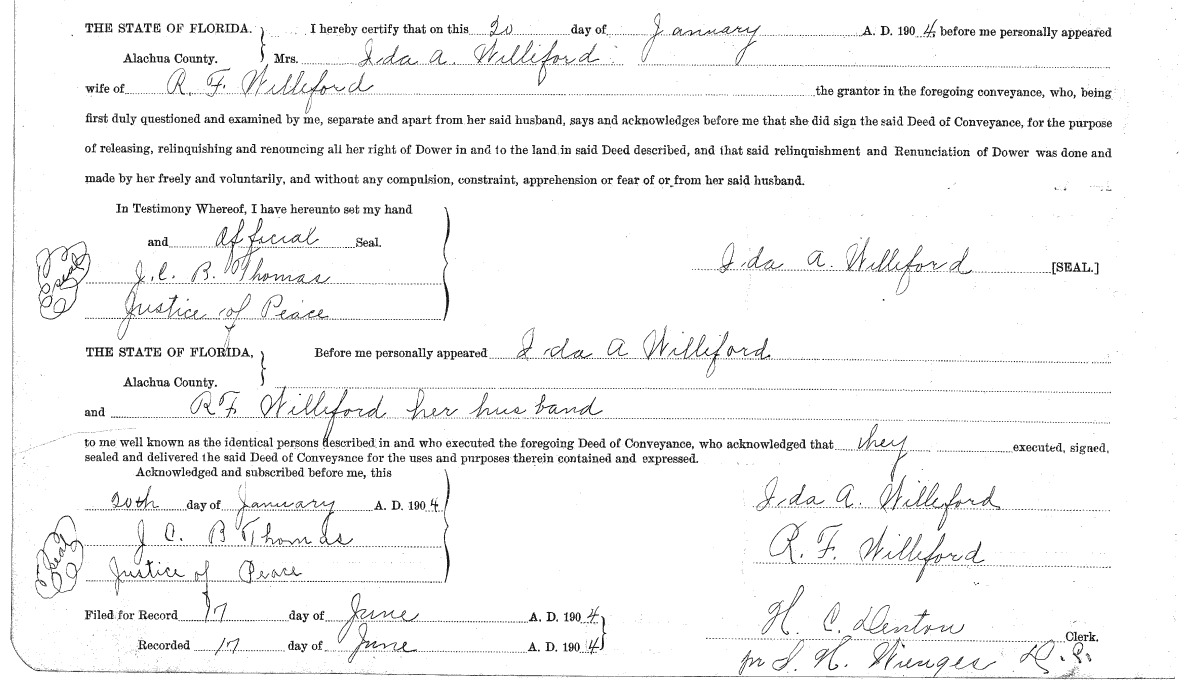 THE STATE OF FLORIDA. } I hereby certify that on this 20 day of January A. D. 1904, before me personally appeared
Alachua County. } Mrs. Ida A. Williford
wife of R. F. Williford the grantor in the foregoing conveyance, who, being
first duly questioned and examined by me, separate and apart from her said husband, says and acknowledges before me that she did sign the said Deed of Conveyance, for the purpose
of releasing, relinquishing and renouncing all her right of Dower in and to the land in said Deed described, and that said relinquishment and Renunciation of Dower was done and
made by her freely and voluntarily, and without any compulsion, constraint, apprehension or fear of or from her said husband.
In Testimony Whereof, I have hereunto set my hand
and official Seal.
Seal
J. C. B. Thomas
Justice of Peace
Ida A. Williford [SEAL.]
THE STATE OF FLORIDA, } Before me personally appeared Ida A Williford
Alachua County.
and R F. Williford her husband
to me well known as the identical persons described in and who executed the foregoing Deed of Conveyance, who acknowledged that they executed, signed,
sealed and delivered the said Deed of Conveyance for the uses and purposes therein contained and expressed.
Acknowledged and subscribed before me, this
20th day of January A. D. 1904
J C. B Thomas
Seal
Justice of Peace
Ida A. Williford
R. F. Williford
Filed for Record 17 day of June A. D. 1904
Recorded 17 day of June A. D. 1904
H. C. Denton Clerk.
pr S. H. Wienges D. C.